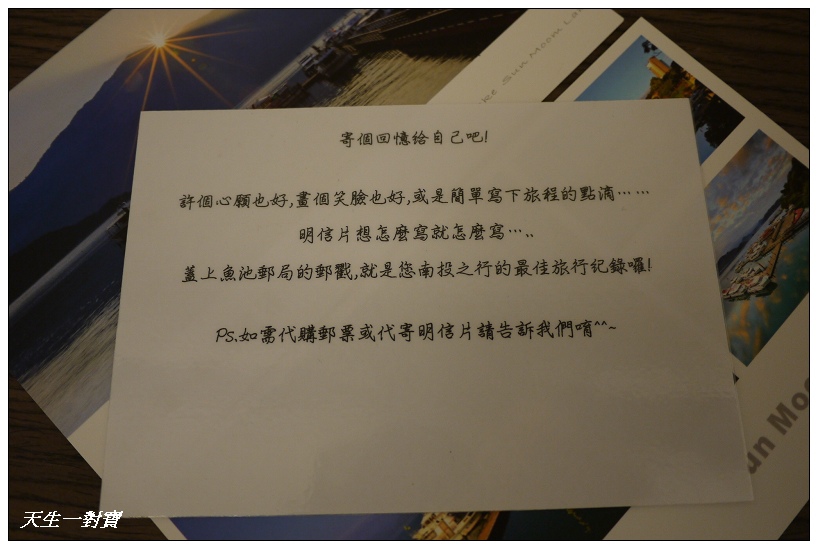 寄個回憶給自己吧!
許個心願也好,畫個笑臉也好,或是簡單寫下旅程的點滴……
明信片想怎麼寫就怎麼寫…..
蓋上魚池郵局的郵戳,就是您南投之行的最佳旅行紀錄囉!
Ps.如需代購郵票或代寄明信片請告訴我們唷^^~
Sun Moon La
un Moo
天生一對寶